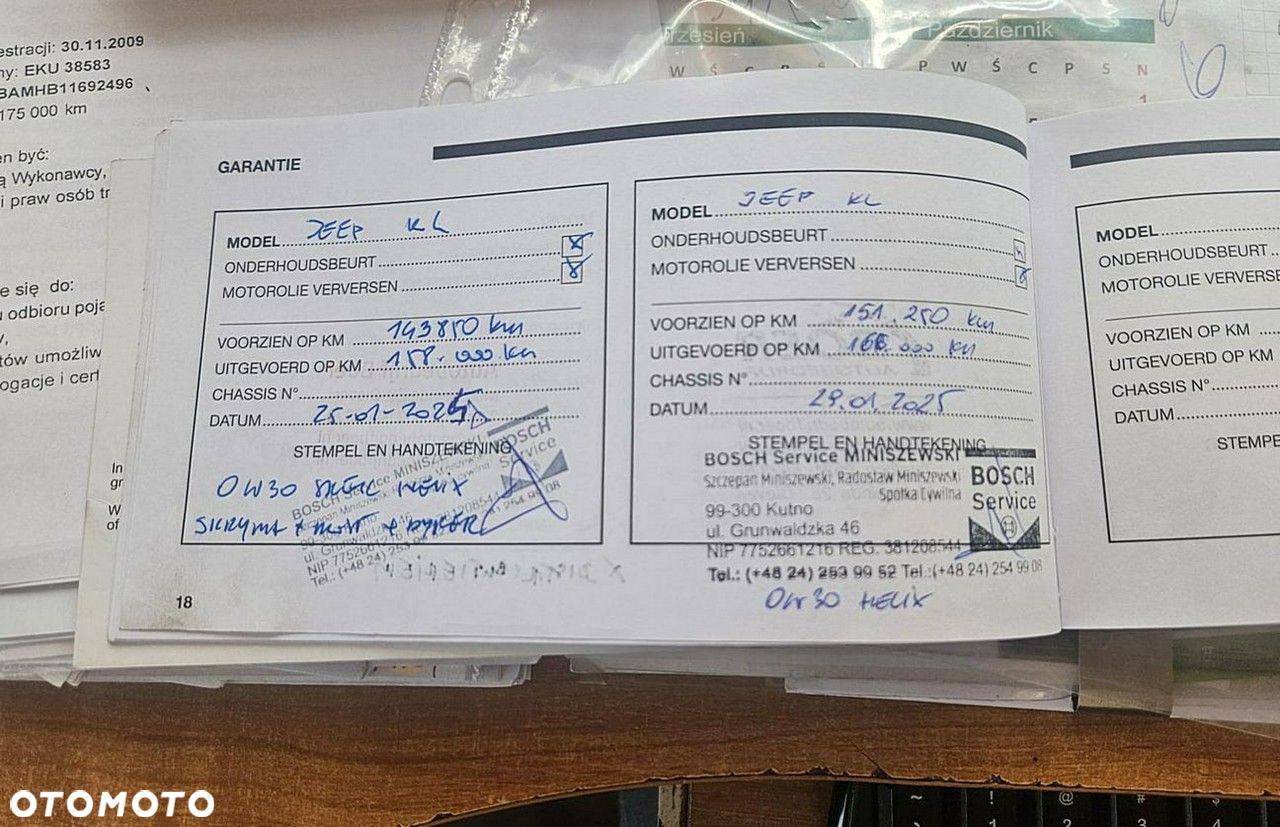 estracji: 30.11.2009
ny: EKU 38583
BAMHB11692496
175 000 km
en być:
ą Wykonawcy,
i praw osób tr
e się do:
u odbioru poja
tów umożliw
ogacje i cert
In
gr
W
of
rzesień
Październik
W Ś C P S
P W Ś C P S N
1
GARANTIE
MODEL JEEP KL
ONDERHOUDSBEURT X
MOTOROLIE VERVERSEN X
VOORZIEN OP KM 143850 km
UITGEVOERD OP KM 158.000 km
CHASSIS N°
DATUM 25-01-2024
STEMPEL EN HANDTEKENING
BOSCH Service MINISZEWSKI
99-300 Kutno
ul. Grunwaldzka 46
NIP 7752661216 REG. 381208544
Tel.: (+48 24) 253 99 52
BOSCH
Service
0W30 HELIX
18
MODEL JEEP KL
ONDERHOUDSBEURT
MOTOROLIE VERVERSEN
VOORZIEN OP KM 151.250 km
UITGEVOERD OP KM 166.000 km
CHASSIS N°
DATUM 29.01.2025
STEMPEL EN HANDTEKENING
BOSCH Service MINISZEWSKI
Szczepan Miniszewski, Radosław Miniszewski
Spółka Cywilna
99-300 Kutno
ul. Grunwaldzka 46
NIP 7752661216 REG. 381208544
Tel.: (+48 24) 253 99 52 Tel.:(+48 24) 254 99 08
BOSCH
Service
0W30 HELIX
MODEL
ONDERHOUDSBEURT
MOTOROLIE VERVERSE
VOORZIEN OP KM
UITGEVOERD OP KM
CHASSIS N°
DATUM
STEMPE
OTOMOTO
~ ! @ # $
1 2 3 4